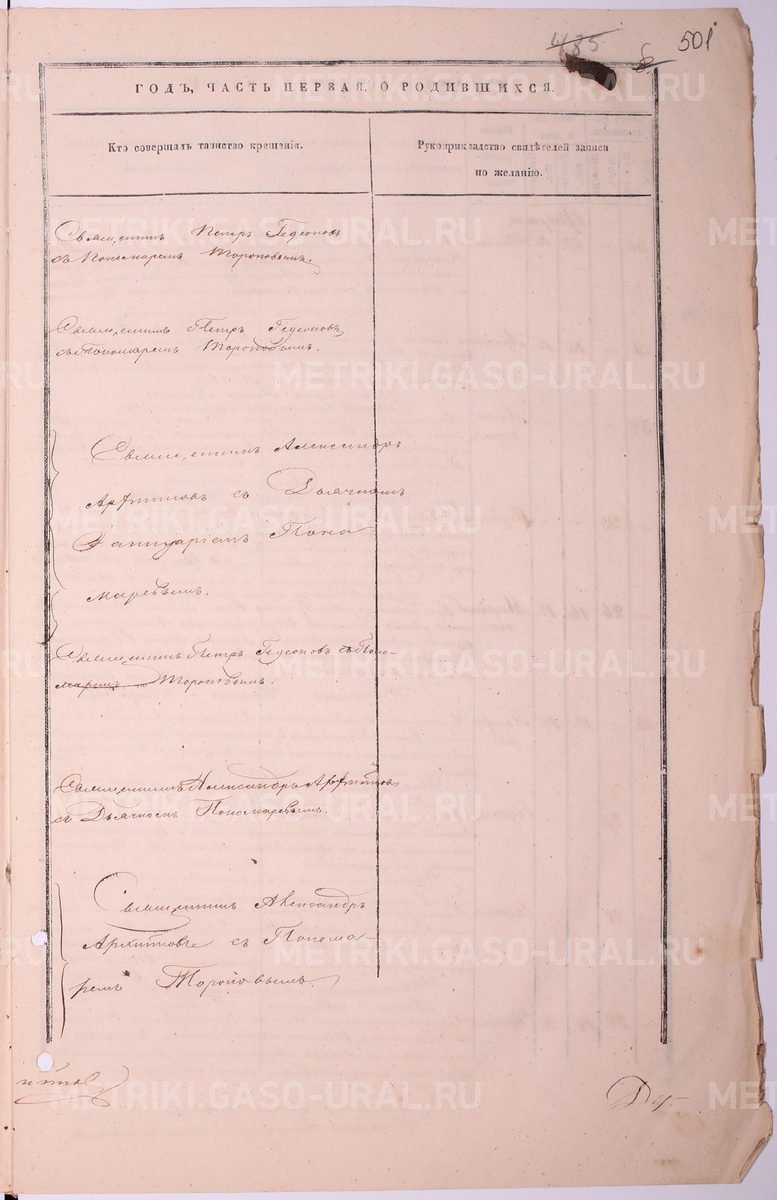 485
501
ГОДЪ, ЧАСТЬ ПЕРВАЯ, О РОДИВШИХСЯ.
Кто совершалъ таинство крещенія.
Рукоприкладство свидѣтелей записи
по желанію.
Священникъ Петръ Гедеоновъ
съ Пономаремъ Тороповымъ.
Священникъ Петръ Гедеоновъ
съ Пономаремъ Тороповымъ.
Священникъ Александръ
съ Дьячкомъ
Іаннуаріемъ Поно
маревымъ.
Священникъ Петръ Гедеоновъ съ Поно-
маремъ Тороповымъ.
Священникъ Александръ
съ Дьячкомъ Пономаревымъ.
Священникъ Александръ
съ Понома-
ремъ Тороповымъ.
METRIKI.GASO-URAL.RU